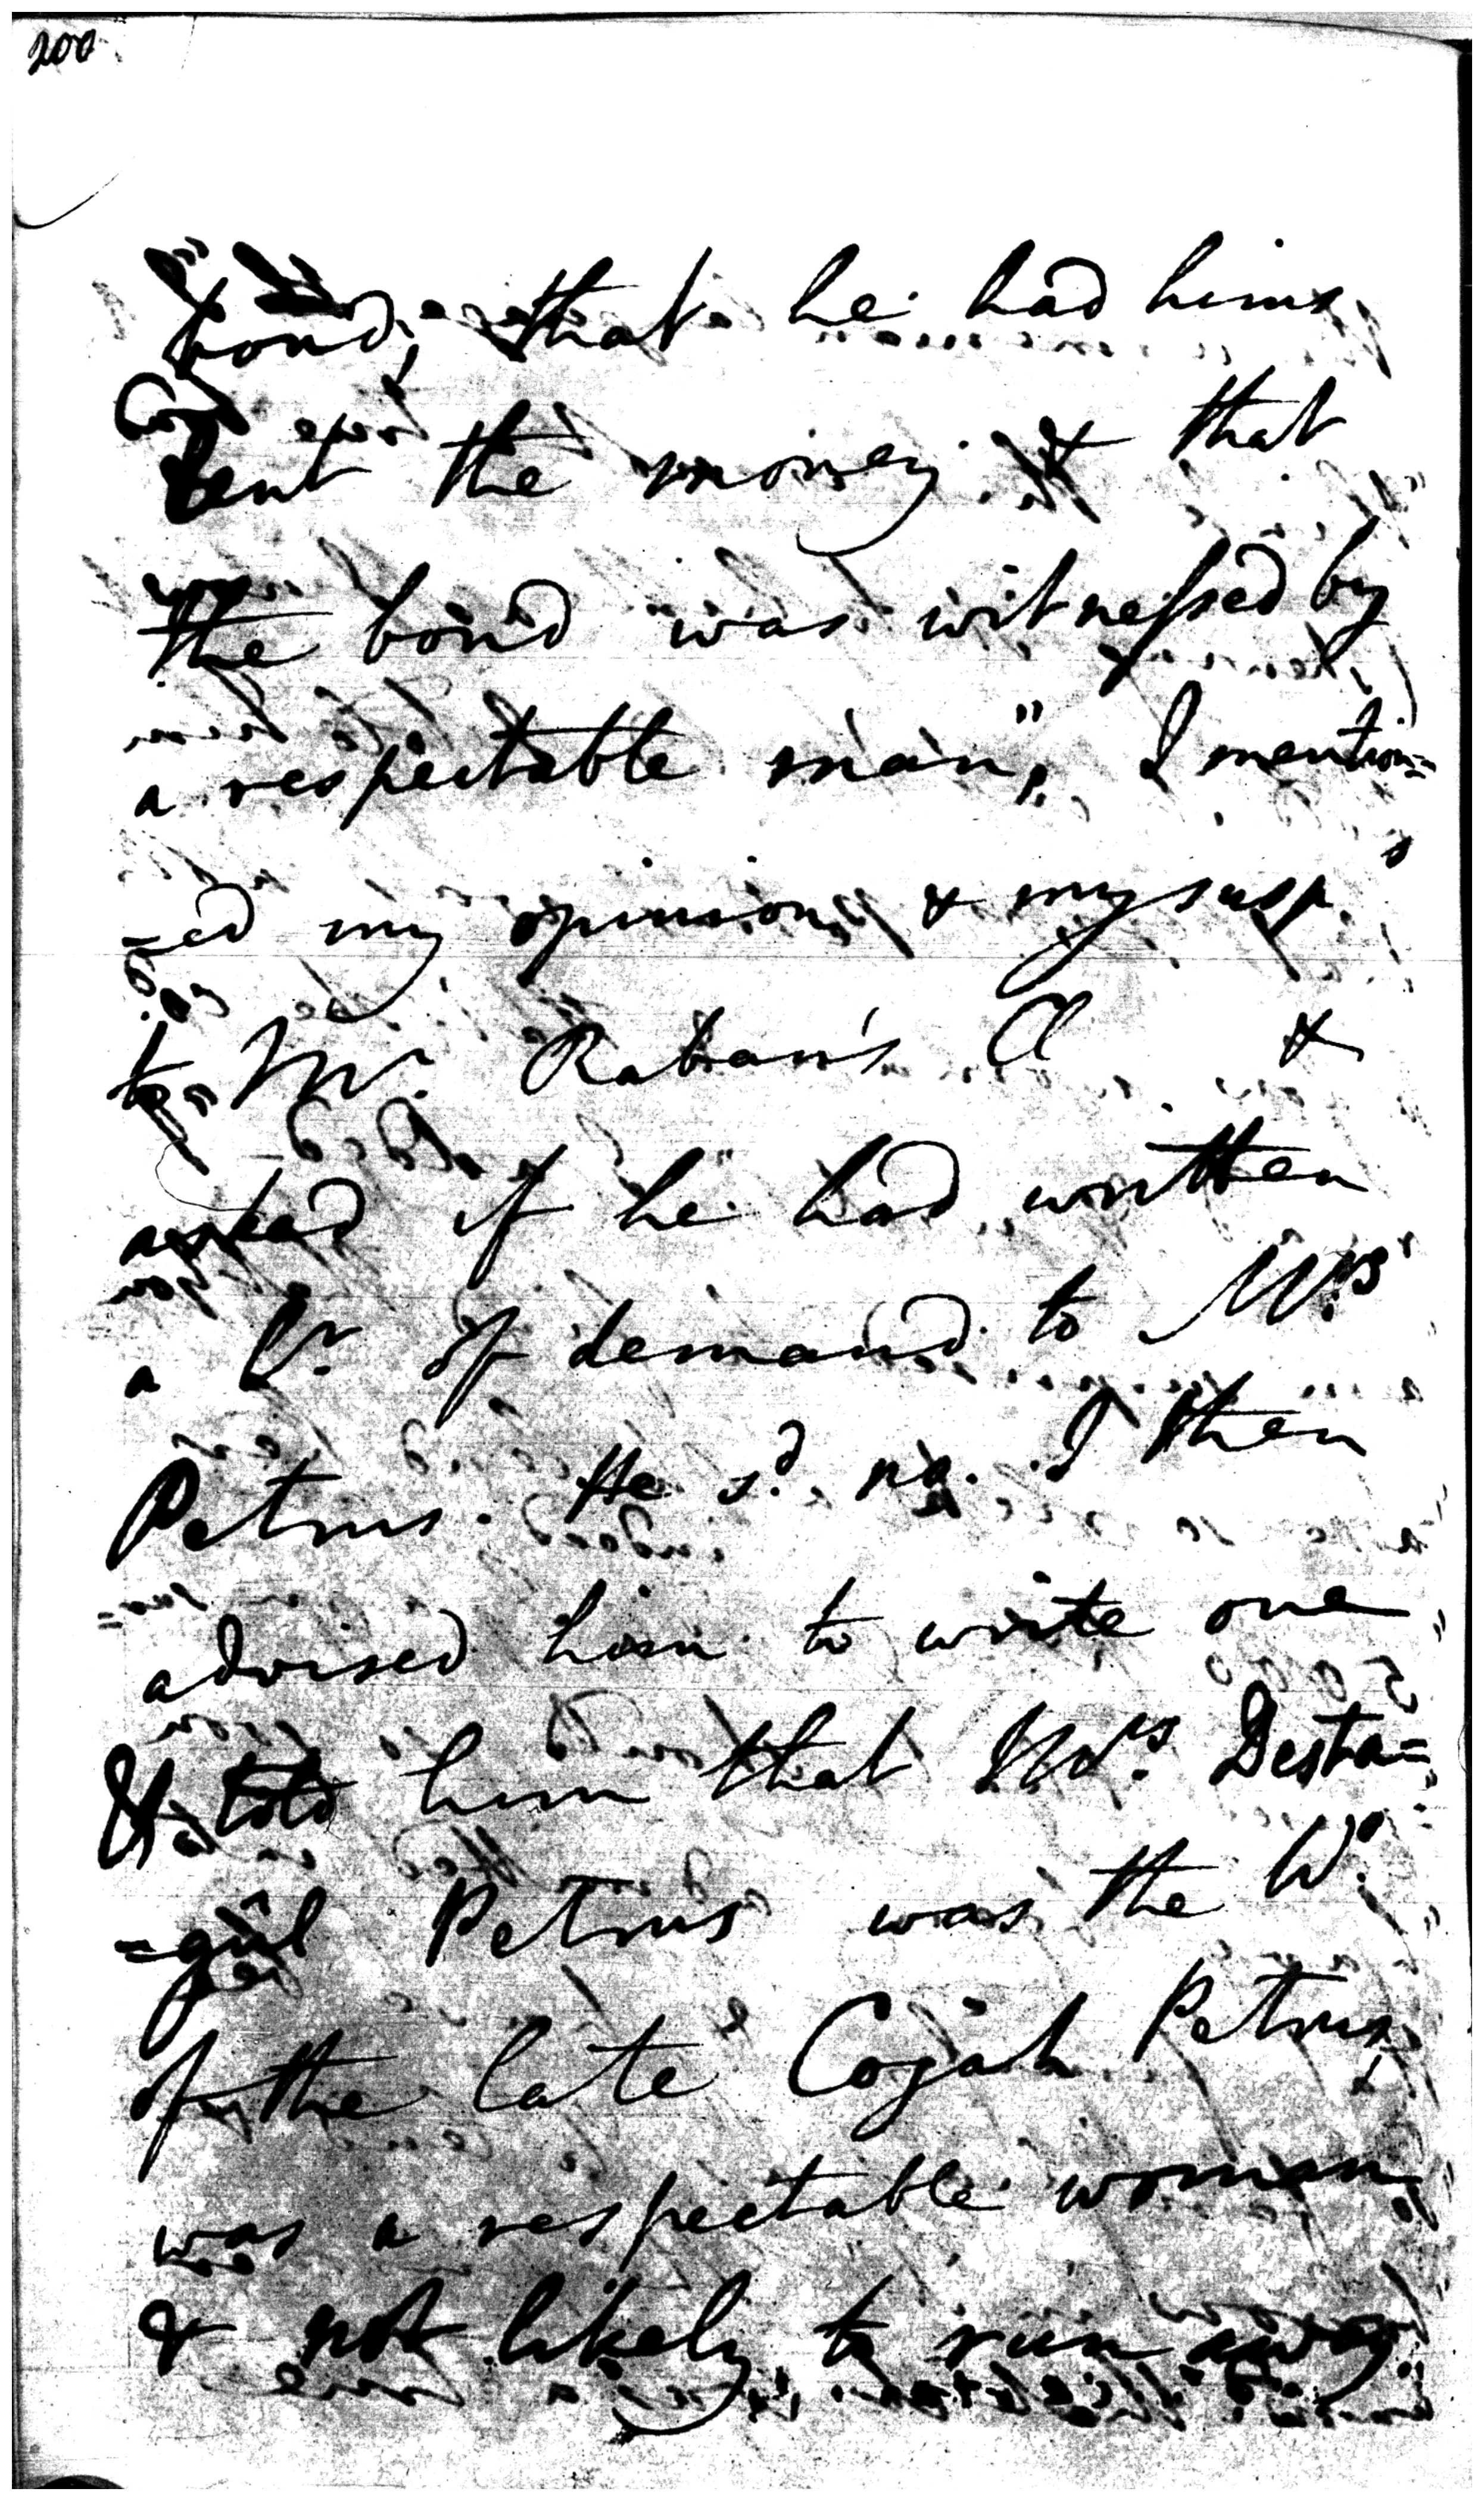 200
bond, that he had hims
lent the money & that
the bond was witnessed by
a respectable man", I mention=
=ed my opinion & my susp.s
to Mr. Raban's Cl &
asked if he had written
a lr. of demand to Mrs
Petrus. He sd. no. I then
advised him to write one
& told him that Mrs. Desta=
=gûl Petrus was the Wo.
of the late Cojah Petrus,
was a respectable woman
& not likely to run away